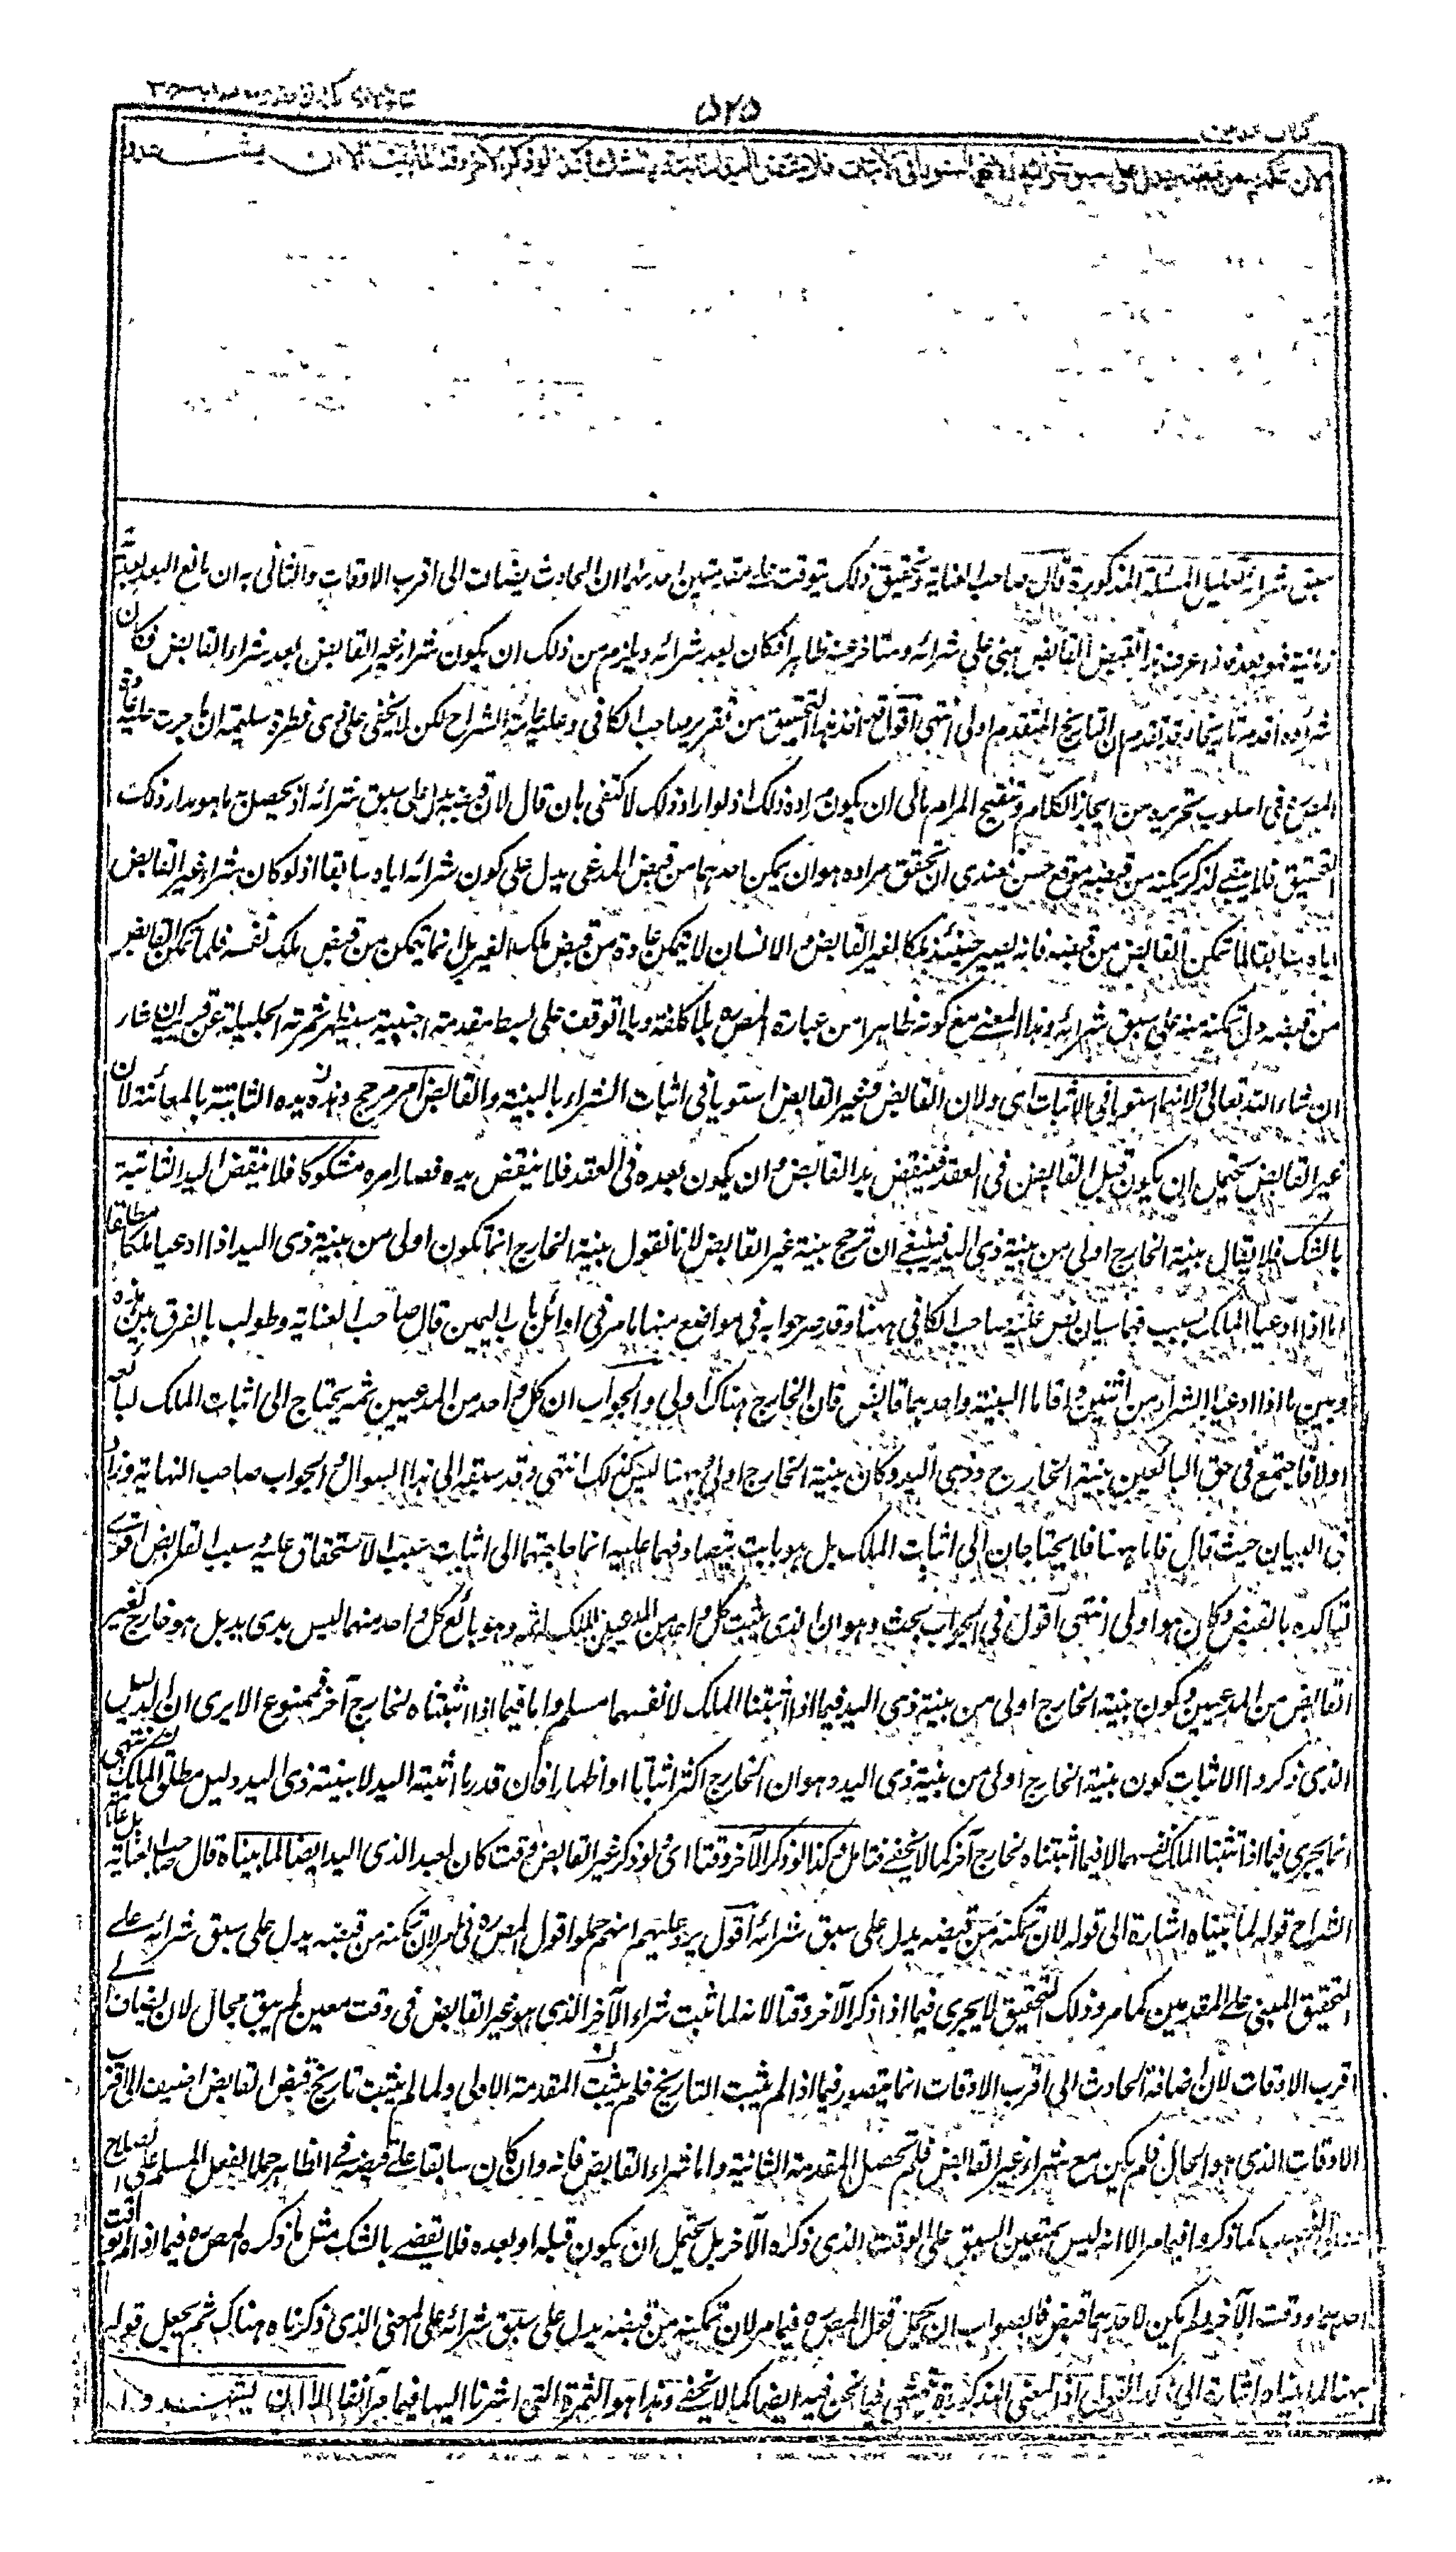 ٥٢٥
لان تمكنه من قبضه يدل على سبق شرائه ولانهما استويا في الاثبات فلا تنقض اليد الثابتة بالشك وكذا لو ذكر الآخر وقتا لما بينا الا ان يشهدوا
سبق شرائه تعليل المسئلة المذكورة قال صاحب العناية وتحقيق ذلك يتوقف على مقدمتين احدىهما ان الحادث يضاف الى اقرب الاوقات والثاني ان مع البعد بعد
زمانية فهو بعده فاذا عرف هذا فقبض القابض مبني على شرائه ومتاخر عنه ظاهرا فكان بعد شرائه ويلزم من ذلك ان يكون شراء غير القابض بعد شراء القابض فكان
شراؤه اقدم تاريخا وقد تقدم ان التاريخ المتقدم اولى انتهى اقول اخذ هذا التحقيق من تقرير صاحب الكافي وعليه عامة الشراح لكن لا يخفى على ذي فطرة سليمة ان ما جرت عليه عادة
المص في اسلوب تحريره من ايجاز الكلام وتنقيح المرام يابى ان يكون مراده ذلك اذ لو اراد ذلك لاكتفى بان قال لان قبضه يدل على سبق شرائه اذ يحصل به ما هو مدار ذلك
التحقيق فلا يبقى لذكر تمكنه من قبضه موقع حسن فعندي ان تحقق مراده هو ان تمكن احدهما من قبض المدعى يدل على كون شرائه اياه سابقا اذ لو كان شراء غير القابض
اياه سابقا لما تمكن القابض من قبضه فانه يصير حينئذ ملكا لغير القابض والانسان لا يتمكن عادة من قبض ملك الغير بل انما يتمكن من قبض ملك نفسه فلما تمكن القابض
من قبضه دل تمكنه منه على سبق شرائه وهذا المعنى مع كونه ظاهرا من عبارة المص ره بلا كلفة وبلا توقف على بسط مقدمة اجنبية سيظهر ثمرته الجليلة عن قريب ان شاء
ان شاء الله تعالى ولانهما استويا في الاثبات اى ولان القابض وغير القابض استويا في اثبات الشراء بالبينة والقابض امر مرجح وهذه يده الثابتة بالمعائنة لان
غير القابض يحتمل ان يكون قبل القابض في العقد فينقض يد القابض وان يكون بعده في العقد فلا ينقض يده فصار امره مشكوكا فلا ينقض اليد الثابتة
بالشك فلا يقال بينة الخارج اولى من بينة ذي اليد فينبغي ان ترجح بينة غير القابض لانا نقول بينة الخارج انما تكون اولى من بينة ذي اليد اذا ادعيا ملكا مطلقا
اما اذا ادعيا الملك بسبب فهما سيان نص عليه صاحب الكافي ههنا وقد مر جوابه في مواضع منها ما مر في اوائل باب اليمين قال صاحب العناية وطولب بالفرق بين هذه
وبين ما اذا ادعيا الشراء من اثنين واقاما البينة واحدهما قابض فان الخارج هناك اولى والجواب ان كل واحد من المدعيين ثمه يحتاج الى اثبات الملك لبائعه
اولا فاجتمع في حق البائعين بينة الخارج وذي اليد وكان بينة الخارج اولى وههنا ليس كذلك انتهى وقد سبقه الى هذا السوال والجواب صاحب النهاية وزاد
في البيان حيث قال فاما ههنا فلا يحتاجان الى اثبات الملك بل هو ثابت بتصادقهما عليه انما حاجتهما الى اثبات سبب الاستحقاق عليه وسبب القابض اقوى
لتاكده بالقبض فكان هو اولى انتهى اقول في الجواب بحث وهو ان الذي يثبت كل واحد من المدعيين الملك له ثمه وهو بائع كل واحد منهما ليس بذي يد بل هو خارج كغير
القابض من المدعيين وكون بينة الخارج اولى من بينة ذي اليد فيما اذا اثبتنا الملك لانفسهما مسلم واما فيما اذا اثبتناه لخارج آخر فممنوع الا يرى ان الدليل
الذي ذكروا الاثبات كون بينة الخارج اولى من بينة ذي اليد وهو ان الخارج اكثر اثباتا او اظهارا فان قدر ما اثبته اليد لا بينة ذي اليد دليل مطلق الملك
انما يجري فيما اذا اثبتنا الملك لنفسهما لا فيما اثبتناه لخارج آخر كما لا يخفى فتامل وكذا لو ذكر الآخر وقتا اى لو ذكر غير القابض وقتا كان العبد لذي اليد ايضا لما بيناه قال صاحب العناية بل عامة
الشراح قوله لما بيناه اشارة الى قوله لان تمكنه من قبضه يدل على سبق شرائه اقول يرد عليهم انهم حملوا قول المص ره فيما مر لان تمكنه من قبضه يدل على سبق شرائه على
التحقيق المبني على المقدمتين كما مر وذلك التحقيق لا يجري فيما اذا ذكر الآخر وقتا لانه لما ثبت شراء الآخر الذي هو غير القابض في وقت معين لم يبق مجال لان يضاف الى
اقرب الاوقات لان اضافة الحادث الى اقرب الاوقات انما يتصور فيما اذا لم يثبت التاريخ فلم يثبت المقدمة الاولى ولما لم يثبت تاريخ قبض القابض اضيف الى اقرب
الاوقات الذي هو الحال فلم يكن مع شراء غير القابض فلم تحصل المقدمة الثانية واما شراء القابض فانه وان كان سابقا على قبضه في الظاهر حملا لفعل المسلم على الصلاح
كما ذكروا فيما مر الا انه ليس بمتعين السبق على الوقت الذي ذكره الآخر بل يحتمل ان يكون قبله او بعده فلا يقضى بالشك مثل ما ذكره المص ره فيما اذا لم يوقت
احدهما ووقت الآخر ولم يكن لاحدهما قبض فالصواب ان يحمل قول المص ره فيما مر لان تمكنه من قبضه يدل على سبق شرائه على المعنى الذي ذكرناه هناك ثم يجعل قوله
ههنا لما بيناه اشارة الى ذلك القول اذ المعنى المذكور تمشى فيما نحن فيه ايضا كما لا يخفى وهذا هو الثمرة التي اشرنا اليها فيما مر آنفا الا ان يشهدوا